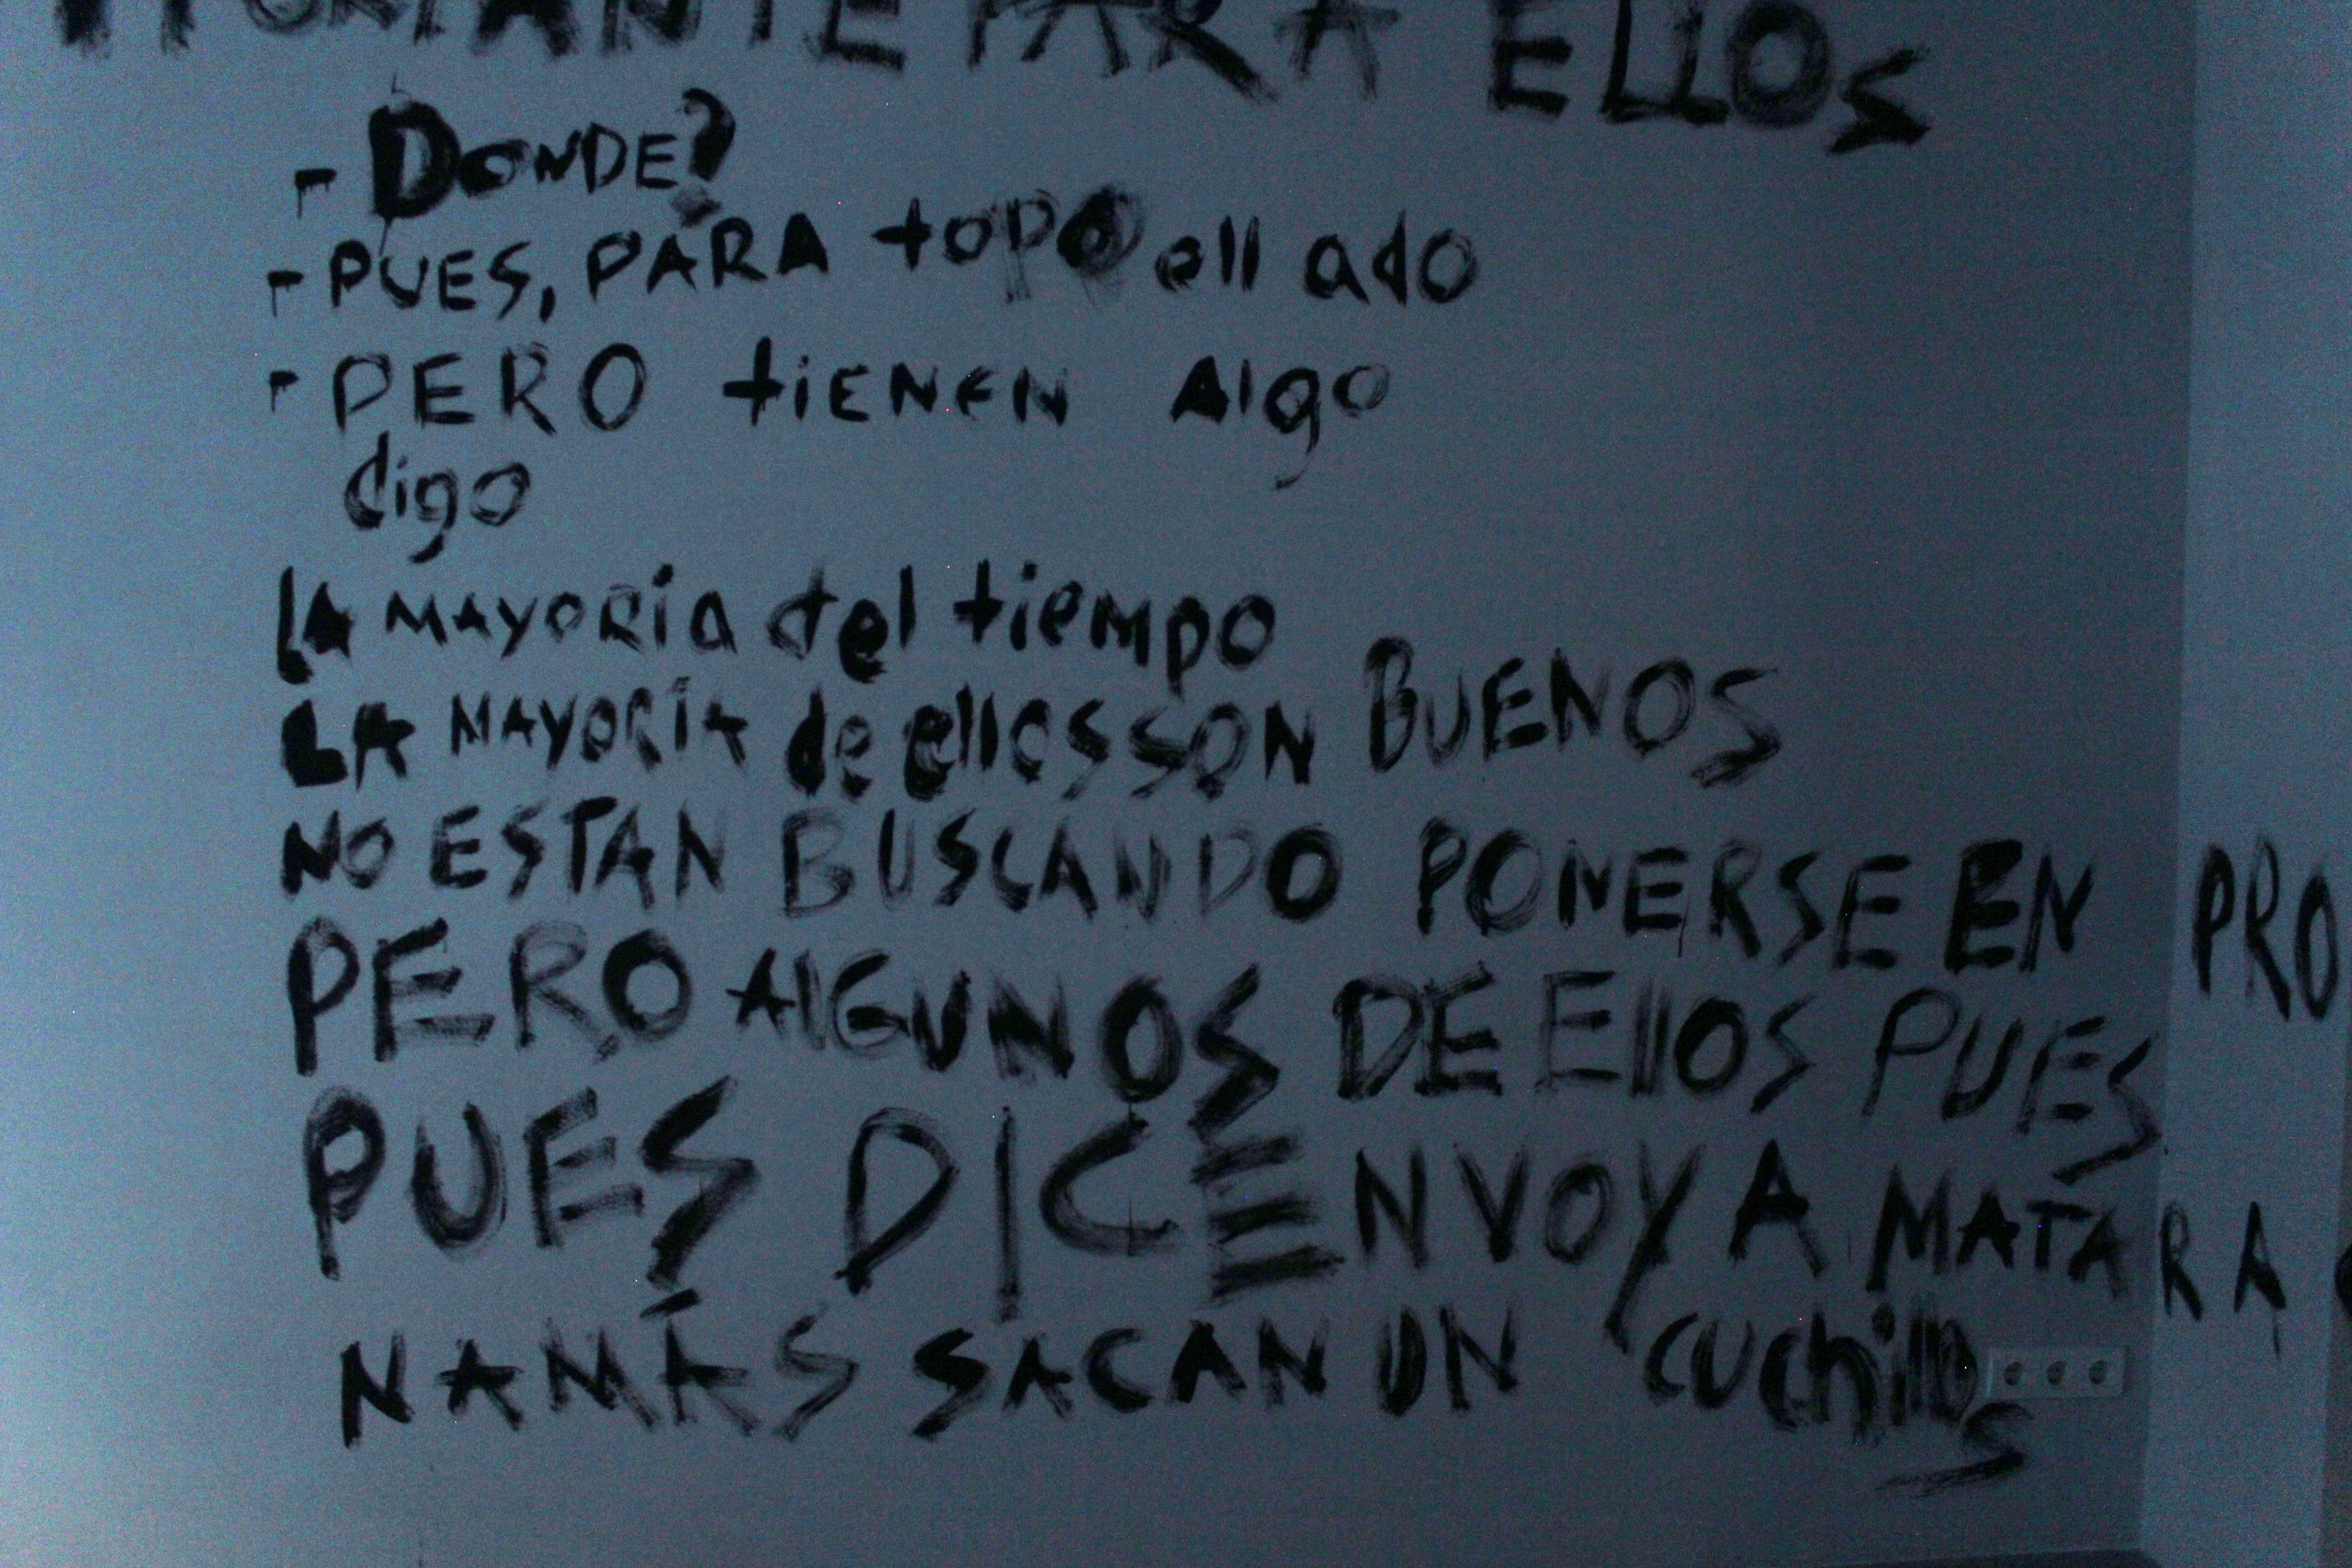 PORTANTE PARA ELLOS
- DONDE?
- PUES, PARA toDO ell ado
- PERO tiENEN Algo
digo
LA MAYORía del tiempo
LA MAYORÍA de ellos SON BUENOS
NO ESTAN BUSCANDO PONERSE EN PRO
PERO AlGUNOS DE EllOS PUES
PUES DICEN VOY A MATAR A
NAMÁS SACAN UN cuchillos